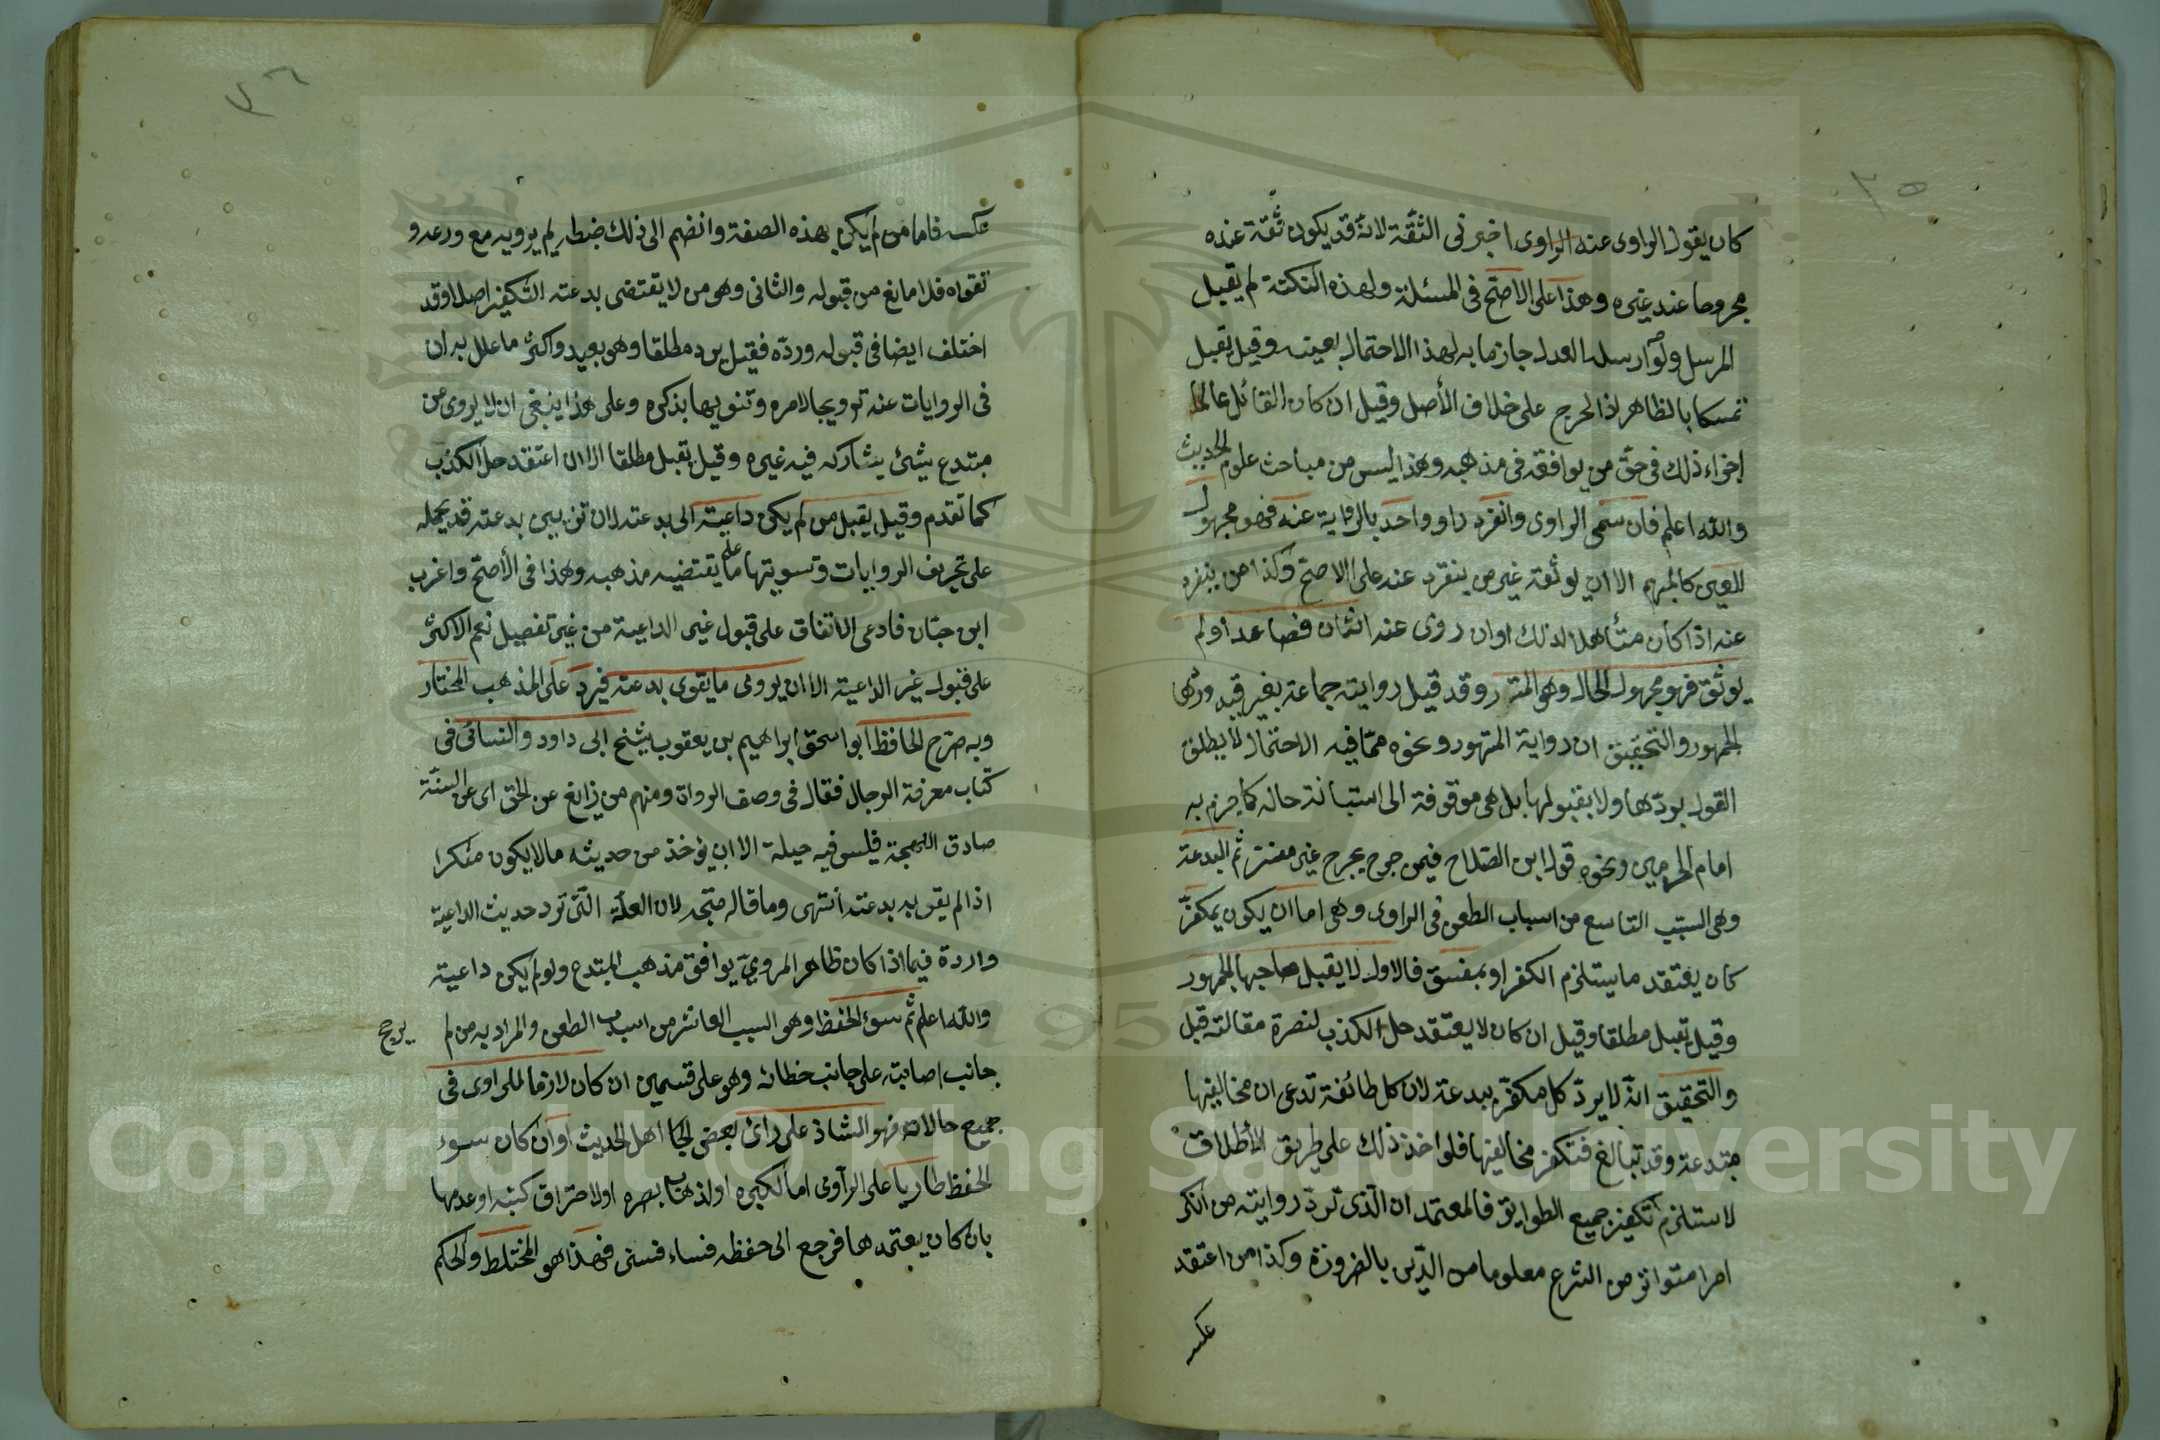 ٣٥
كان يقول الراوى عنه الراوى اخبرنى الثقة لانه قد يكون ثقة عنده
مجروحا عند غيره وهذا على الاصح فى المسئلة ولهذه النكتة لم يقبل
المرسل ولو ارسله العدل جازما به لهذا الاحتمال بعينه وقيل يقبل
تمسكا بالظاهر اذ الجرح على خلاف الأصل وقيل ان كان القائل عالما
اجزاء ذلك فى حق من يوافقه فى مذهبه وهذا ليس من مباحث علوم الحديث
والله اعلم فان سمى الراوى وانفرد راو واحد بالرواية عنه فهو مجهول
العين كالمبهم الا ان يوثقه غير من ينفرد عنه على الاصح وكذا من ينفرد
عنه اذا كان متأهلا لذلك او ان روى عنه اثنان فصاعدا ولم
يوثق فهو مجهول الحال وهو المستور وقد قيل روايته جماعة بغير قيد وردها
الجمهور والتحقيق ان رواية المستور ونحوه مما فيه الاحتمال لا يطلق
القول بردها ولا بقبولها بل هى موقوفة الى استبانة حاله كما جزم به
امام الحرمين ونحوه قول ابن الصلاح فيمن جرح بجرح غير مفسر ثم البدعة
وهى السبب التاسع من اسباب الطعن فى الراوى وهى اما ان يكون بمكفر
كان يعتقد ما يستلزم الكفر او بمفسق فالاول لا يقبل صاحبها الجمهور
وقيل تقبل مطلقا وقيل ان كان لا يعتقد حل الكذب لنصرة مقالته قبل
والتحقيق انه لا يردّ كل مكفر ببدعة لان كل طائفة تدعى ان مخالفيها
مبتدعة وقد تبالغ فتكفر مخالفيها فلو اخذ ذلك على طريق الأطلاق
لاستلزم تكفير جميع الطوايق فالمعتمد ان الّذى تردّ روايته من انكر
امرا متواتر من الشرع معلوما من الدّين بالضرورة وكذا من اعتقد
عكسه
٣٦
عكسه فاما من لم يكن بهذه الصفة وانضم الى ذلك ضبطه لم يرويه مع ورعه و
تقواه فلا مانع من قبوله والثانى وهو من لا يقتضى بدعته التكفير اصلا وقد
اختلف ايضا فى قبوله وردّه فقيل يرد مطلقا وهو بعيد واكثر ما علل به ان
فى الروايات عنه ترويجا لامره وتنويها بذكره وعلى هذا ينبغى ان لا يروى من
مبتدع بشئ يشاركه فيه غيره وقيل يقبل مطلقا الا ان اعتقد حل الكذب
كما تقدم وقيل يقبل من لم يكن داعية الى بدعته لان تزيين بدعته قد يحمله
على تحريف الروايات وتسويتها على ما يقتضيه مذهبه وهذا فى الأصح واغرب
ابن حبان فادعى الاتفاق على قبول غير الداعية من غير تفصيل نعم الاكثر
على قبول غير الداعية الا ان يروى ما يقوى بدعته فيرد على المذهب المختار
وبه صرح الحافظ ابو اسحق ابراهيم بن يعقوب شيخ ابى داود والنسائى فى
كتاب معرفة الرجال فقال فى وصف الرواة ومنهم من زايغ عن الحق اى عن السنة
صادق اللهجة فليس فيه حيلة الا ان يؤخذ من حديثه مالا يكون منكرا
اذا لم يقو به بدعته انتهى وما قاله متجه لان العلة التى ترد حديث الداعية
واردة فيما اذا كان ظاهر المروى يوافق مذهب المبتدع ولو لم يكن داعية
والله اعلم ثم سوئ الحفظ وهو السبب العاشر من اسباب الطعن والمراد به من لم
يرجح
جانب اصابته على جانب خطائه وهو على قسمين ان كان لازما للراوى فى
جميع حالاته فهو الشاذ على رائ بعض اهل الحديث او ان كان سوء
الحفظ طاريا على الرآوى اما لكبره او لذهاب بصره او لاحتراق كتبه او عدمها
بان كان يعتمدها فرجع الى حفظه فساء فسنى فهذا هو المختلط والحكم
Copyright © King Saud University
1957